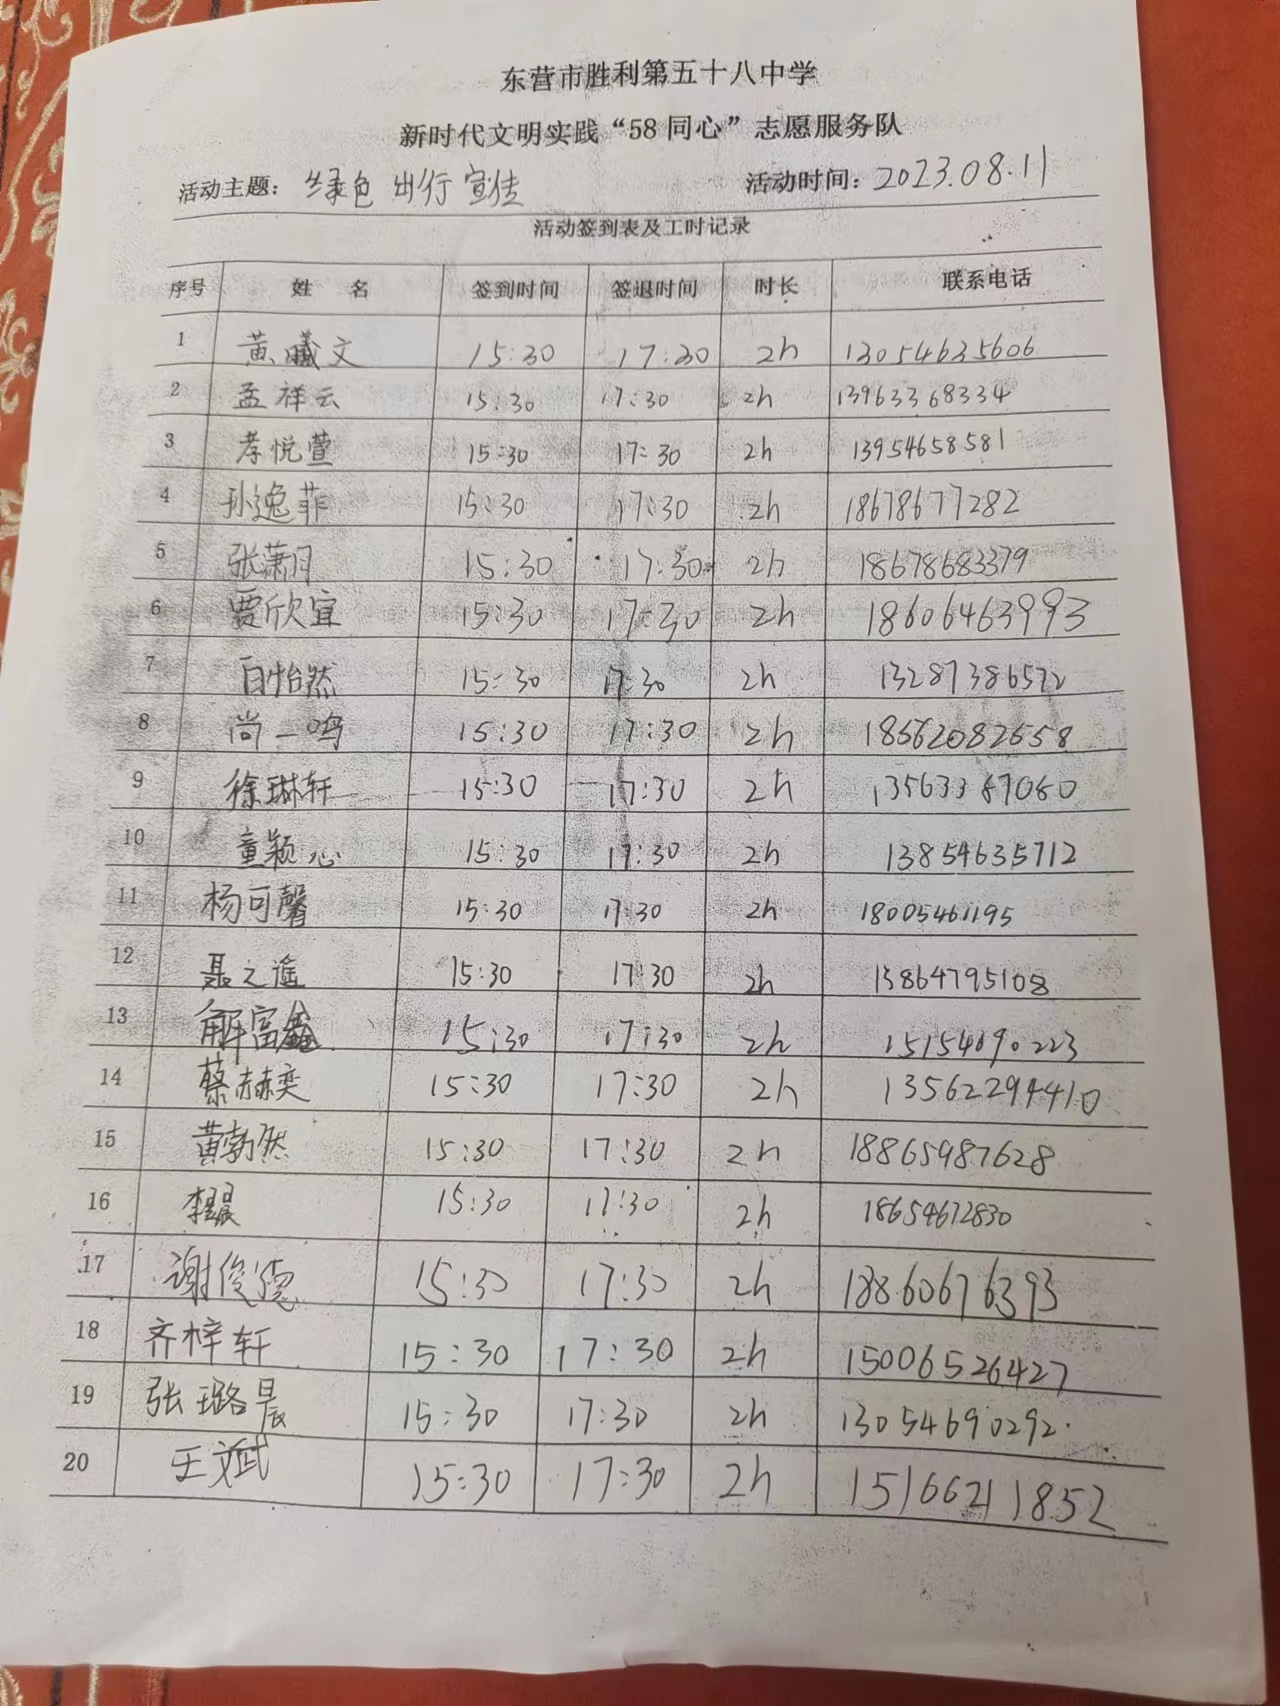 东营市胜利第五十八中学
新时代文明实践“58同心”志愿服务队
活动主题：绿色出行宣传 活动时间：2023.08.11
活动签到表及工时记录
序号 姓 名 签到时间 签退时间 时长 联系电话
1 黄曦文 15:30 17:30 2h 13054635606
2 孟祥云 15:30 17:30 2h 13963368334
3 孝悦萱 15:30 17:30 2h 13954658581
4 孙逸菲 15:30 17:30 2h 18678677282
5 张萧月 15:30 17:30 2h 18678683379
6 贾欣宜 15:30 17:30 2h 18606463993
7 白怡然 15:30 17:30 2h 13287386572
8 尚一鸣 15:30 17:30 2h 18662082658
9 徐琳轩 15:30 17:30 2h 13563387060
10 童颖心 15:30 17:30 2h 13854635712
11 杨可馨 15:30 17:30 2h 18005461195
12 聂之遥 15:30 17:30 2h 13864795108
13 解富鑫 15:30 17:30 2h 15154690223
14 蔡赫奕 15:30 17:30 2h 13562294410
15 黄勃然 15:30 17:30 2h 18865987628
16 15:30 17:30 2h 18654672830
17 谢俊德 15:30 17:30 2h 18860676393
18 齐梓轩 15:30 17:30 2h 15006526427
19 张璐晨 15:30 17:30 2h 13054690292
20 王斌 15:30 17:30 2h 15166211852